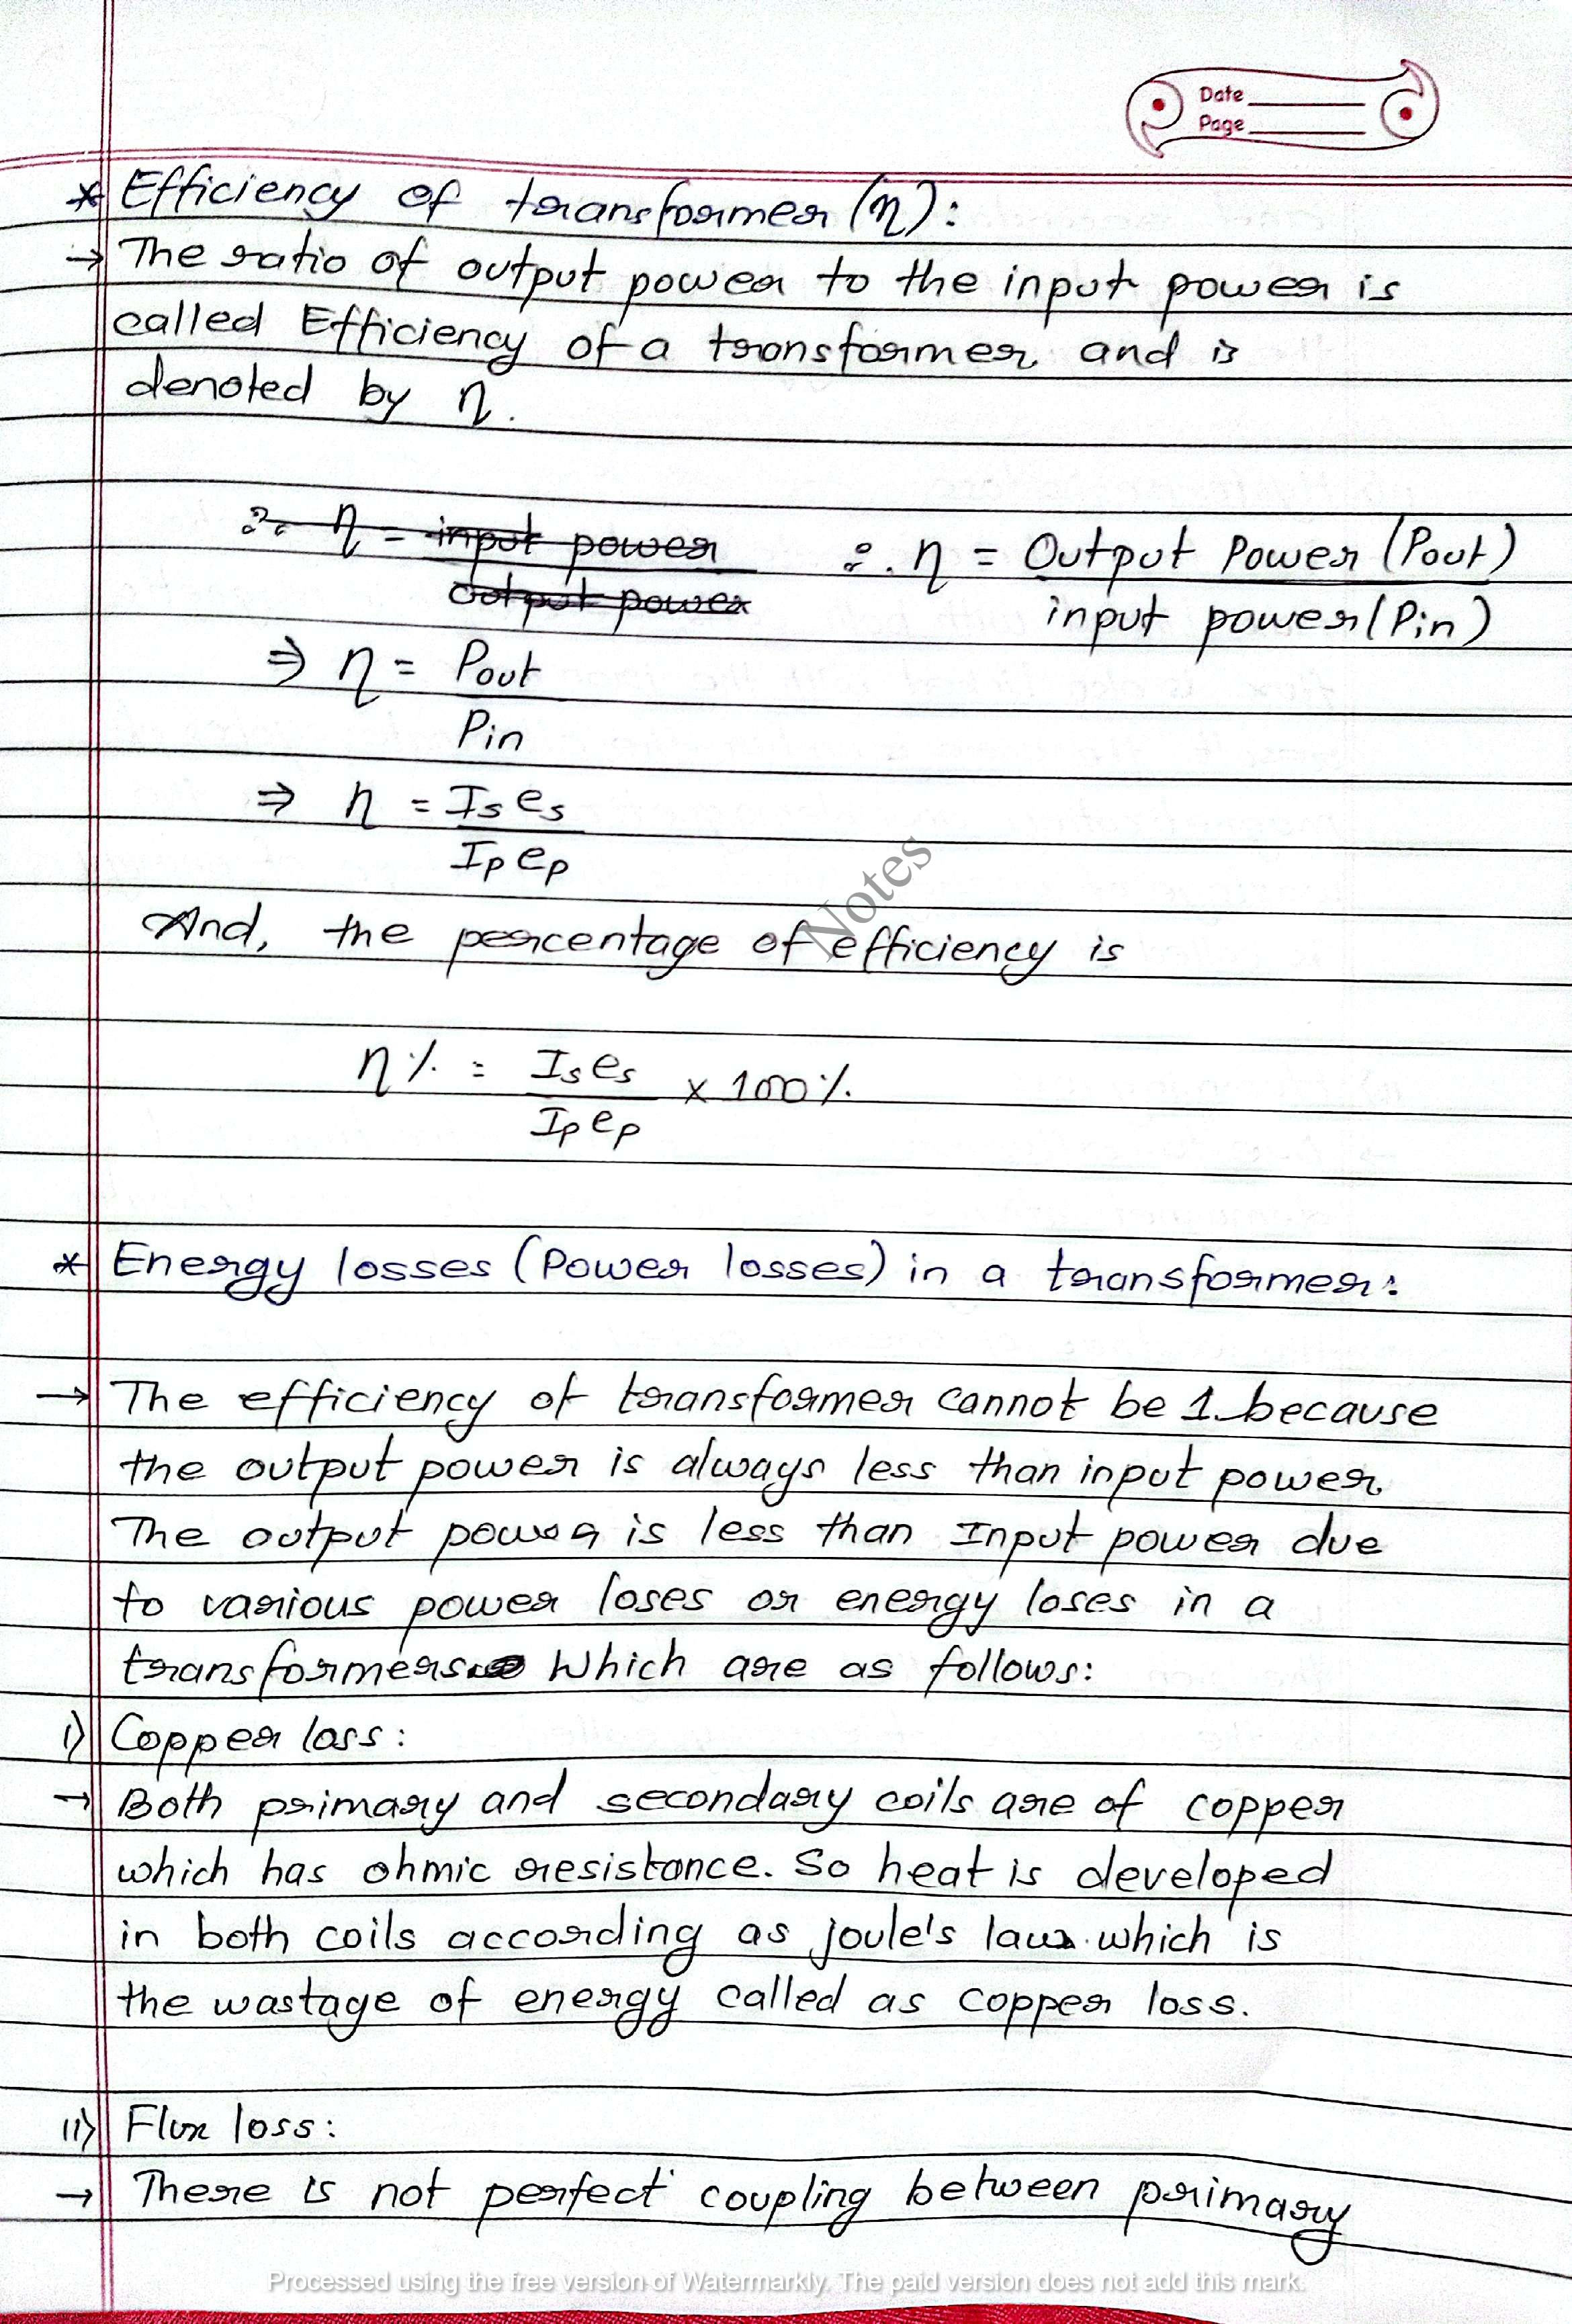 Date
Page
* Efficiency of transformer (η):
→ The ratio of output power to the input power is
called Efficiency of a transformer and is
denoted by η.
∴ η = input power / output power ∴ η = Output Power (Pout) / input power (Pin)
⇒ η = Pout / Pin
⇒ η = Is es / Ip ep
And, the percentage of efficiency is
η% = Is es / Ip ep × 100%
Notes
* Energy losses (Power losses) in a transformer:
→ The efficiency of transformer cannot be 1 because
the output power is always less than input power.
The output power is less than Input power due
to various power loses or energy loses in a
transformers Which are as follows:
i) Copper loss:
→ Both primary and secondary coils are of copper
which has ohmic resistance. So heat is developed
in both coils according as joule's law which is
the wastage of energy called as copper loss.
ii) Flux loss:
→ There is not perfect coupling between primary
Processed using the free version of Watermarkly. The paid version does not add this mark.